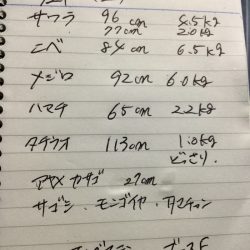 サワラ 96cm 4.5kg
77cm 2.0kg
ニベ 84cm 6.5kg
メジロ 92cm 6.0kg
ハマチ 65cm 2.2kg
タチウオ 113cm 1.0kg
どっさり.
アヤメカサゴ 27cm
サゴシ、モンゴイヤ、